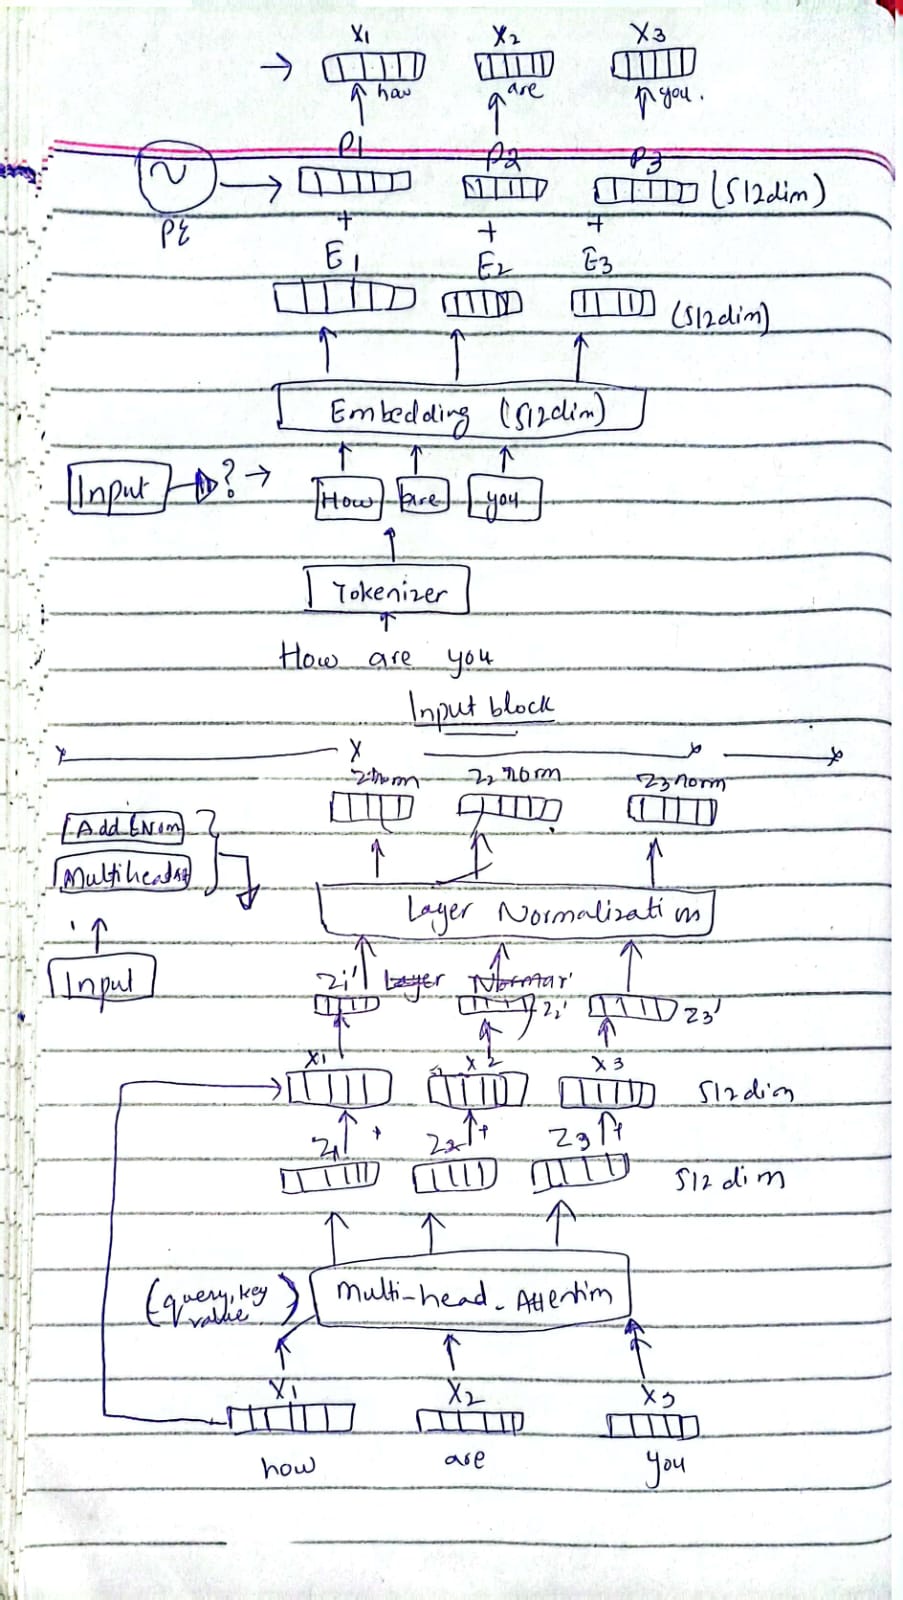 X1 X2 X3
how are you.
P1 P2 P3 (512dim)
PE
+ + +
E1 E2 E3
(512dim)
Embedding (512dim)
Input ? How are you
Tokenizer
How are you
Input block
Z1norm Z2norm Z3norm
Add & Norm
Multihead
Layer Normalization
Input
Z1' Layer Normar'
Z2' Z3'
X1 X2 X3
512dim
Z1 + Z2 + Z3 +
512dim
(query, key value) Multi-head-Attention
X1 X2 X3
how are you